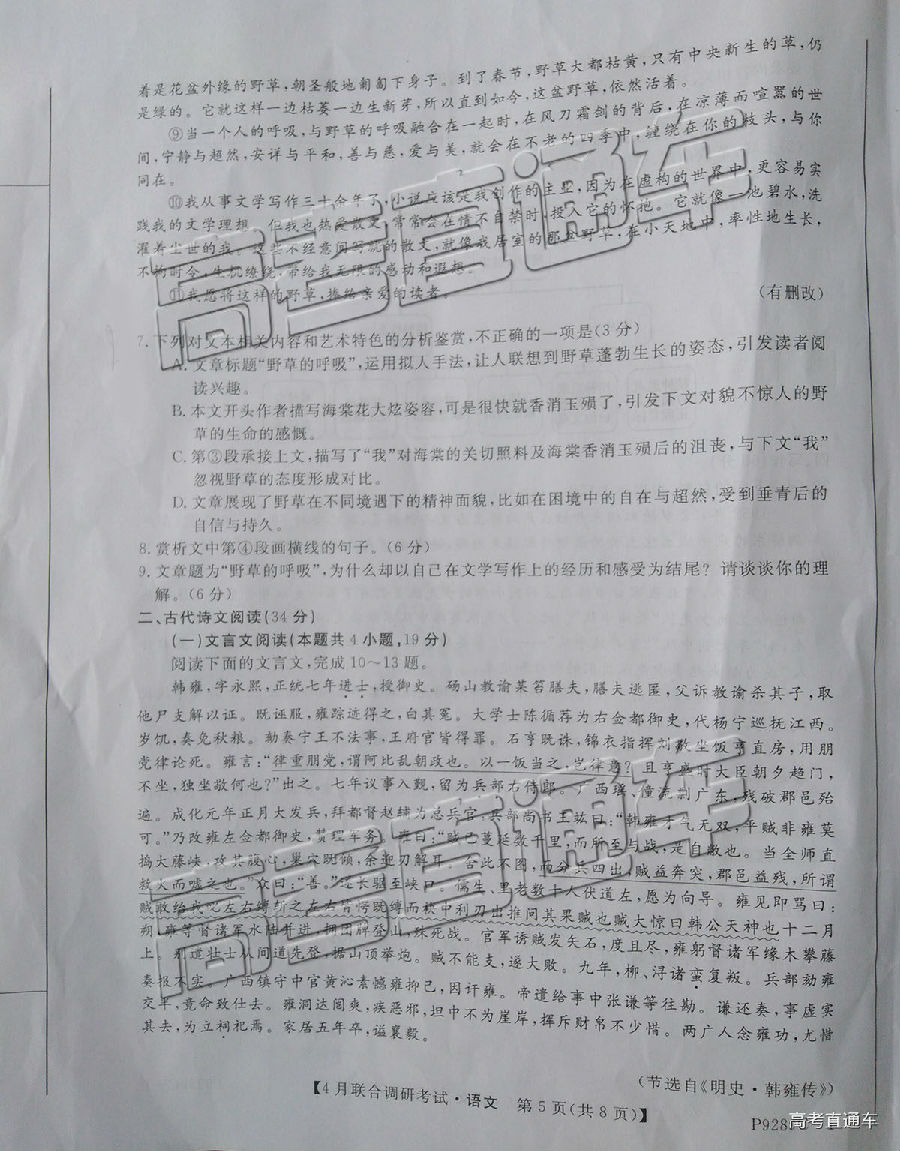 着是花盆外缘的野草,朝圣般地匍匐下身子。到了春节,野草大都枯黄,只有中央新生的草,仍
是绿的。它就这样一边枯萎一边生新芽,所以直到如今,这盆野草,依然活着。
⑨当一个人的呼吸,与野草的呼吸融合在一起时,在风刀霜剑的背后,在凉薄而喧嚣的世
间,宁静与超然,安详与平和,善与慈,爱与美,就会在不老的四季中,缠绕在你的枝头,与你
同在。
⑩我从事文学写作三十余年了,小说应该是我创作的主业,因为在虚构的世界中,更容易实
践我的文学理想。但我也热爱散文,常常会在情不自禁时,投入它的怀抱。它就像一池碧水,洗
濯着尘世的我。这些不经意间写就的散文,就像我居室的那盆野草,在小天地中,率性地生长,
不拘时令,生机缭绕,带给我无限的感动和遐想。
⑪我愿将这样的野草,捧给亲爱的读者。
(有删改)
7.下列对文本相关内容和艺术特色的分析鉴赏,不正确的一项是(3分)
A.文章标题“野草的呼吸”,运用拟人手法,让人联想到野草蓬勃生长的姿态,引发读者阅
读兴趣。
B.本文开头作者描写海棠花大炫姿容,可是很快就香消玉殒了,引发下文对貌不惊人的野
草的生命的感慨。
C.第③段承接上文,描写了“我”对海棠的关切照料及海棠香消玉殒后的沮丧,与下文“我”
忽视野草的态度形成对比。
D.文章展现了野草在不同境遇下的精神面貌,比如在困境中的自在与超然,受到垂青后的
自信与持久。
8.赏析文中第④段画横线的句子。(6分)
9.文章题为“野草的呼吸”,为什么却以自己在文学写作上的经历和感受为结尾?请谈谈你的理
解。(6分)
二、古代诗文阅读(34分)
(一)文言文阅读(本题共4小题,19分)
阅读下面的文言文,完成10~13题。
韩雍,字永熙,正统七年进士,授御史。砀山教谕某笞膳夫,膳夫逃匿,父诉教谕杀其子,取
他尸支解以证。既诬服,雍踪迹得之,白其冤。大学士陈循荐为右佥都御史,代杨宁巡抚江西。
岁饥,奏免秋粮。劾奏宁王不法事,王府官皆得罪。石亨既诛,锦衣指挥刘敬坐饭亨直房,用朋
党律论死。雍言:“律重朋党,谓阿比乱朝政也。以一饭当之,岂律意?且亨盛时大臣朝夕趋门,
不坐,独坐敬何也?”出之。七年议事入觐,留为兵部右侍郎。广西瑶、僮流剽广东,残破郡邑殆
遍。成化元年正月大发兵,拜都督赵辅为总兵官,兵部尚书王竑曰:“韩雍才气无双,平贼非雍莫
可。”乃改雍左佥都御史,赞理军务。雍曰:“贼已蔓延数千里,而所至与战,是自敝也。当全师直
捣大藤峡,攻其腹心,巢穴既倾,余迎刃解耳。舍此不图,而分兵四出,贼益奔突,郡邑益残,所谓
救火而嘘之也。”众曰:“善。”遂长驱至峡口。儒生、里老数十人伏道左,愿为向导。雍见即骂曰:
贼敢绐我叱左右缚斩之左右皆愕既缚而袂中利刃出推问其果贼也贼大惊曰韩公天神也十二月
朔,雍等督诸军水陆并进,拥团牌登山,殊死战。官军诱贼发矢石,度且尽,雍躬督诸军缘木攀藤
上。别遣壮士从间道先登,据山顶举炮。贼不能支,遂大败。九年,柳、浔诸蛮复叛。兵部劾雍
奏报不实。广西镇守中官黄沁素憾雍抑己,因讦雍。帝遣给事中张谦等往勘。谦还奏,事虚实
交半,竟命致仕去。雍洞达闿爽,疾恶邪,坦中不为崖岸,挥斥财帛不少惜。两广人念雍功,尤惜
其去,为立祠祀焉。家居五年卒,谥襄毅。
(节选自《明史·韩雍传》)
【4月联合调研考试·语文 第5页(共8页)】
P928
高考直通车